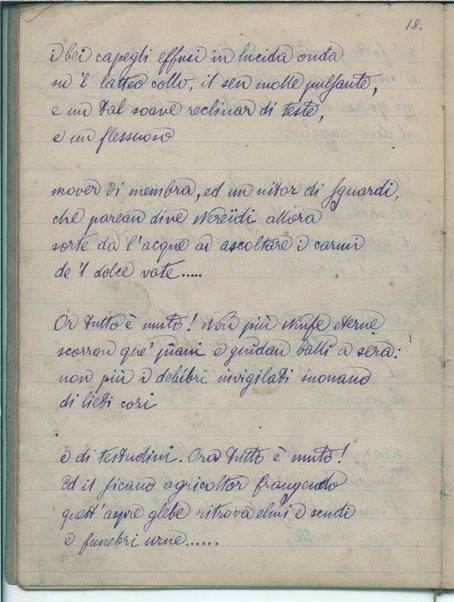 18.
i bei capegli effusi in lucida onda
su 'l latteo collo, il sen molle pulsante,
e un tal soave reclinar di teste,
e un flessuoso
mover di membra, ed un nitor di sguardi,
che parean dive Nerëidi allora
sorte da l'acque ad ascoltare i carmi
de 'l dolce vate.....
Or tutto è muto! Non più Ninfe eterne
scorron que' piani e guidan balli a sera:
non più i delubri invigilati suonano
di lieti cori
e di testudini. Ora tutto è muto!
Ed il sicano agricoltor frangendo
quest'aspre glebe ritrova elmi e scudi
e funebri urne.....